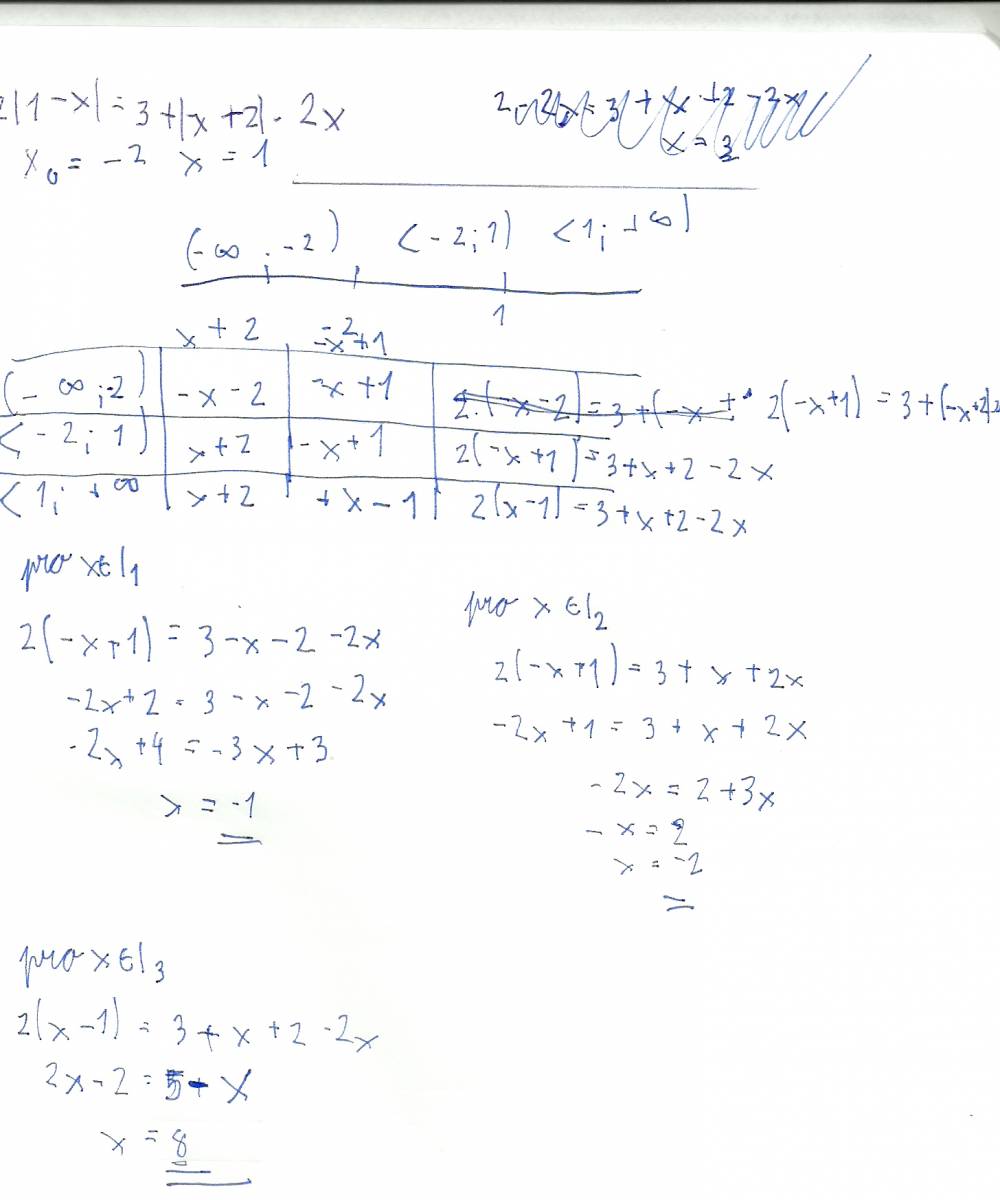 2|1-x| = 3+|x+2| - 2x
x₀ = -2 x = 1
2-2x=3+x+2-2x
x=3
(-∞;-2) <-2;1) <1;+∞)
-2 1
x+2 -x+1
(-∞;-2) -x-2 -x+1 2·(-x-2)=3+(-x+ 2(-x+1) = 3+(-x+2)-2
<-2;1) x+2 -x+1 2(-x+1)=3+x+2-2x
<1;+∞ x+2 +x-1 2(x-1)=3+x+2-2x
pro x∈I₁
2(-x+1) = 3-x-2-2x
-2x+2 = 3-x-2-2x
-2x+4 = -3x+3
x = -1
pro x∈I₂
2(-x+1)=3+x+2x
-2x+1=3+x+2x
-2x=2+3x
-x=2
x=-2
pro x∈I₃
2(x-1) = 3+x+2-2x
2x-2=5-x
x=8